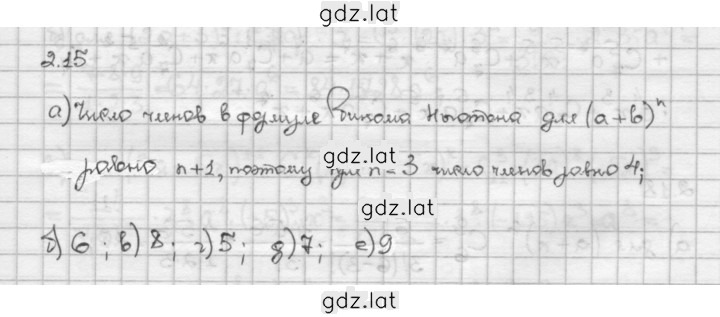 gdz.lat
2.15
а) Число членов в формуле Бинома Ньютона для (a+b)^n
gdz.lat
равно n+1, поэтому при n=3 число членов равно 4;
gdz.lat
б) 6; в) 8; г) 5; д) 7; е) 9
gdz.lat